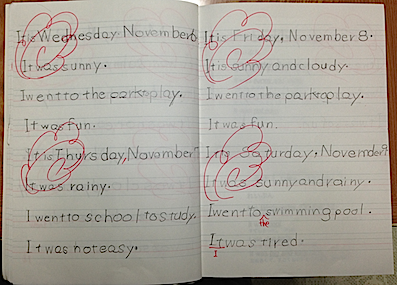 It is Wednesday. November 6
It was sunny.
I went to the park to play.
It was fun.
It is Thursday, November 7
It was rainy.
I went to school to study.
It was not easy.
It is Friday, November 8.
It is sunny and cloudy.
I went to the park to play.
It was fun.
Saturday. November 9.
It was sunny and rainy.
I went to swimming pool.
the
It was tired.
I